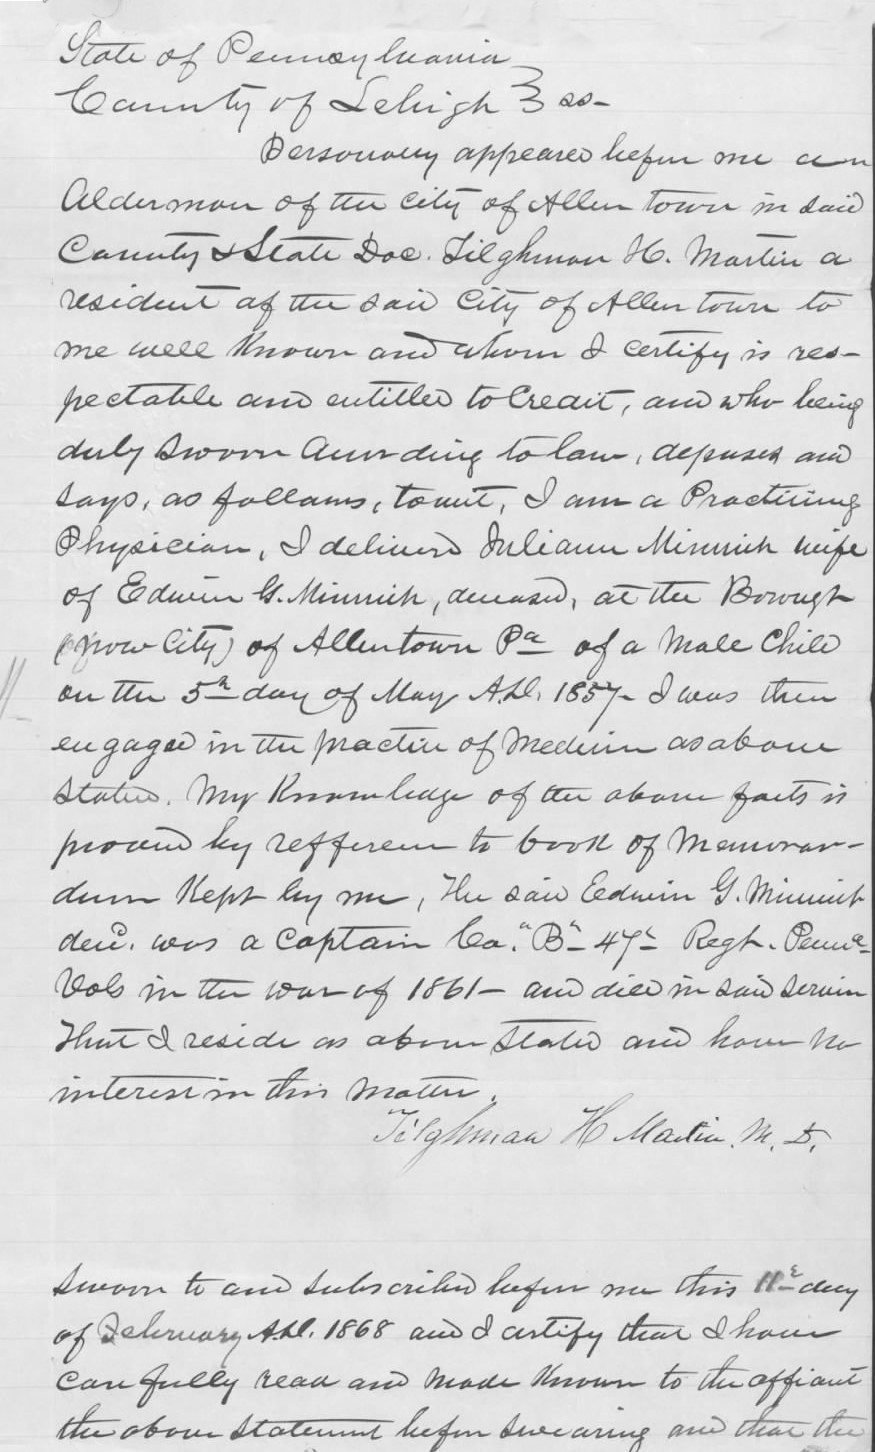 State of Pennsylvania
County of Lehigh } ss-
Personally appeared before me an
Alderman of the City of Allentown in said
County & State Doc. Tilghman H. Martin a
resident of the said City of Allentown to
me well Known and whom I certify is res-
pectable and entitled to Credit, and who being
duly Sworn According to law, deposes and
says, as follows, towit, I am a Practicing
Physician, I delivered Juliann Minnich wife
of Edwin G. Minnich, deceased, at the Borough
(now City) of Allentown Pa of a Male Child
on the 5th day of May A.D. 1857- I was then
engaged in the practice of Medicine as above
Stated. My Knowledge of the above facts is
proved by refference to book of Memoran-
dum Kept by me, The said Edwin G. Minnich
dec'd. was a Captain Co. "B" 47th Regt. Penna
Vols in the war of 1861- and died in said Service
That I reside as above Stated and have no
interest in this Matter.
Tilghman H Martin M. D.
Sworn to and subscribed before me this 11th day
of February A.D. 1868 and I certify that I have
carefully read and made Known to the affiant
the above statement before swearing and that the